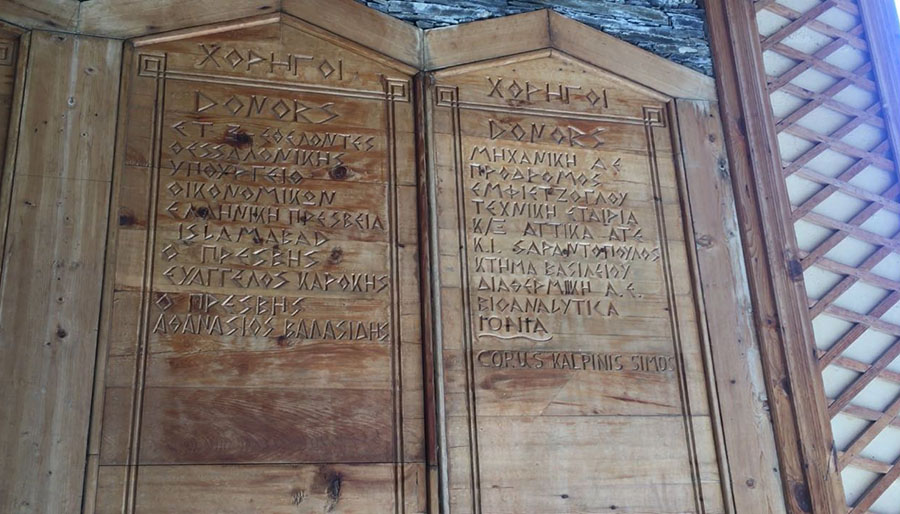 ΧΟΡΗΓΟΙ
DONORS
ΕΤ. ΕΘΕΛΟΝΤΕΣ
ΘΕΣΣΑΛΟΝΙΚΗΣ
ΥΠΟΥΡΓΕΙΟ
ΟΙΚΟΝΟΜΙΚΩΝ
ΕΛΛΗΝΙΚΗ ΠΡΕΣΒΕΙΑ
ISLAMABAD
Ο ΠΡΕΣΒΗΣ
ΕΥΑΓΓΕΛΟΣ ΚΑΡΟΚΗΣ
Ο ΠΡΕΣΒΗΣ
ΑΘΑΝΑΣΙΟΣ ΒΑΛΑΣΙΔΗΣ
ΧΟΡΗΓΟΙ
DONORS
ΜΗΧΑΝΙΚΗ Α.Ε
ΠΡΟΔΡΟΜΟΣ
ΕΜΦΙΕΤΖΟΓΛΟΥ
ΤΕΧΝΙΚΗ ΕΤΑΙΡΙΑ
Κ/Ξ ΑΤΤΙΚΑ ΑΤΕ
Κ.Ι. ΣΑΡΑΝΤΟΠΟΥΛΟΣ
ΚΤΗΜΑ ΒΑΣΙΛΕΙΟΥ
ΔΙΑΘΕΡΜΙΚΗ Α.Ε.
ΒΙΟΑΝΑLΥΤΙCΑ
CORUS KALPINIS SIMOS